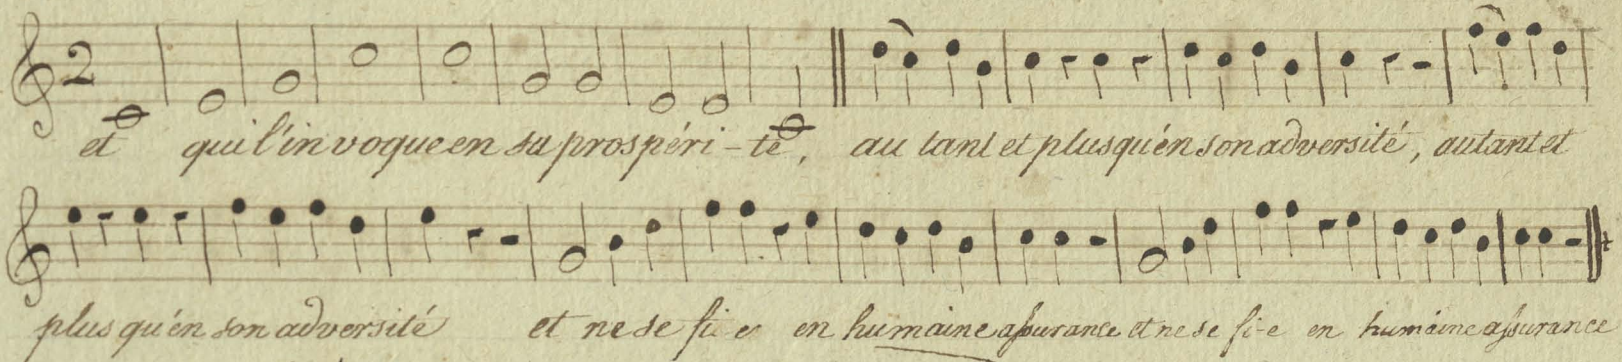 et qui l'invoque en sa prospéri-té, au tant et plus qu'en son adversité, autant et
plus qu'en son adversité et ne se fie en humaine assurance et ne se fi-e en humaine assurance